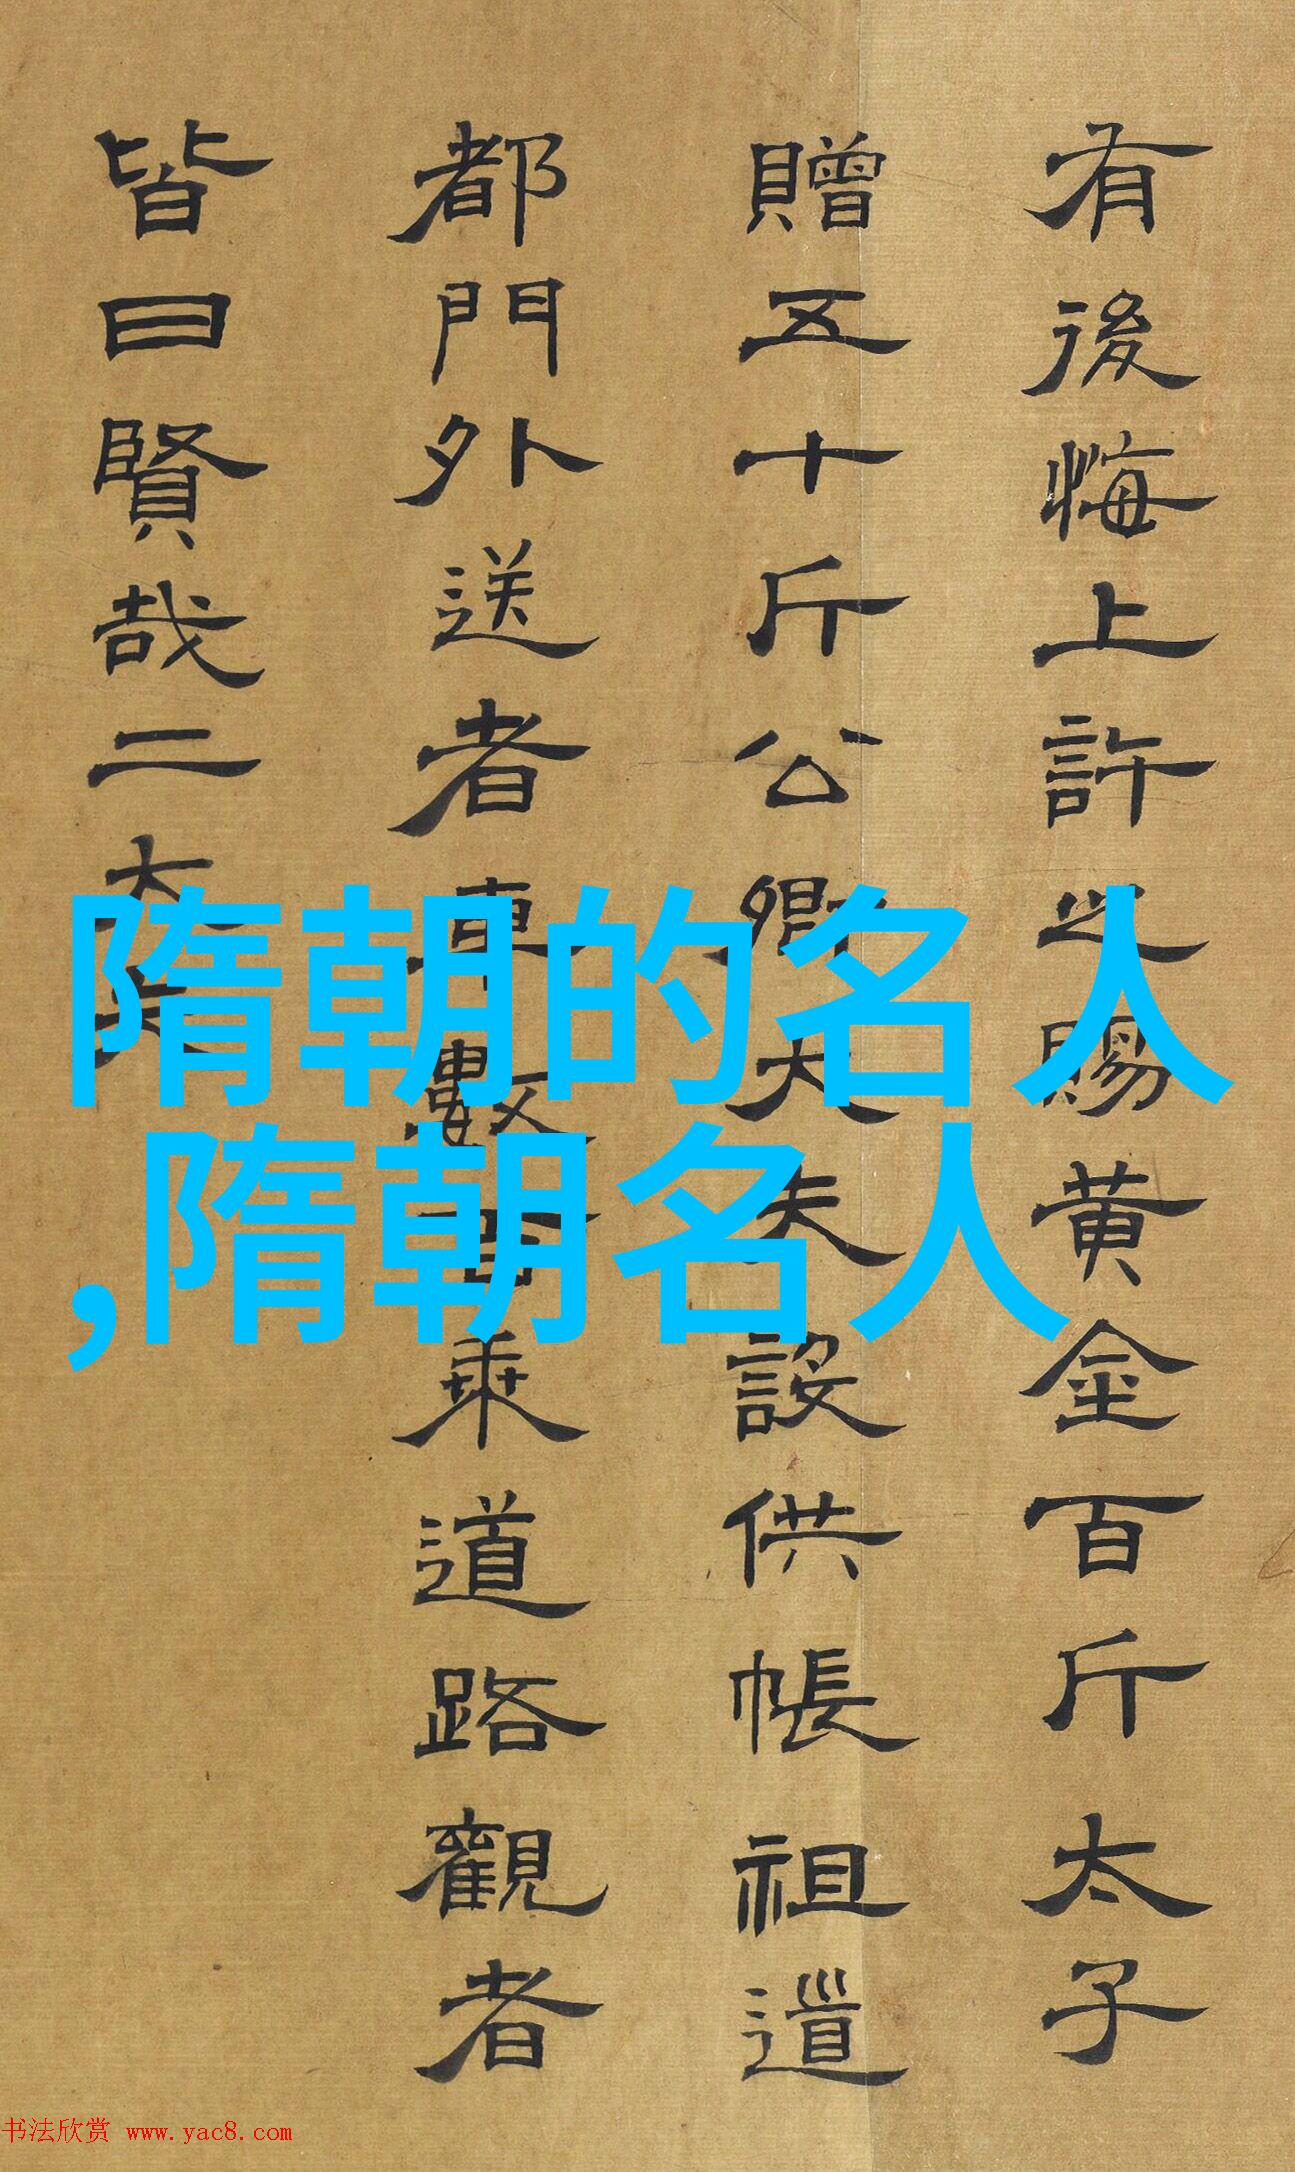 有後悔上許之賜黄金百斤太子
贈五十斤公卿大夫設供帳祖道
都門外送者車數百乘道路觀者
皆曰賢哉二大夫
隋朝的名人
,隋朝名人
书法欣赏 www.yac8.com